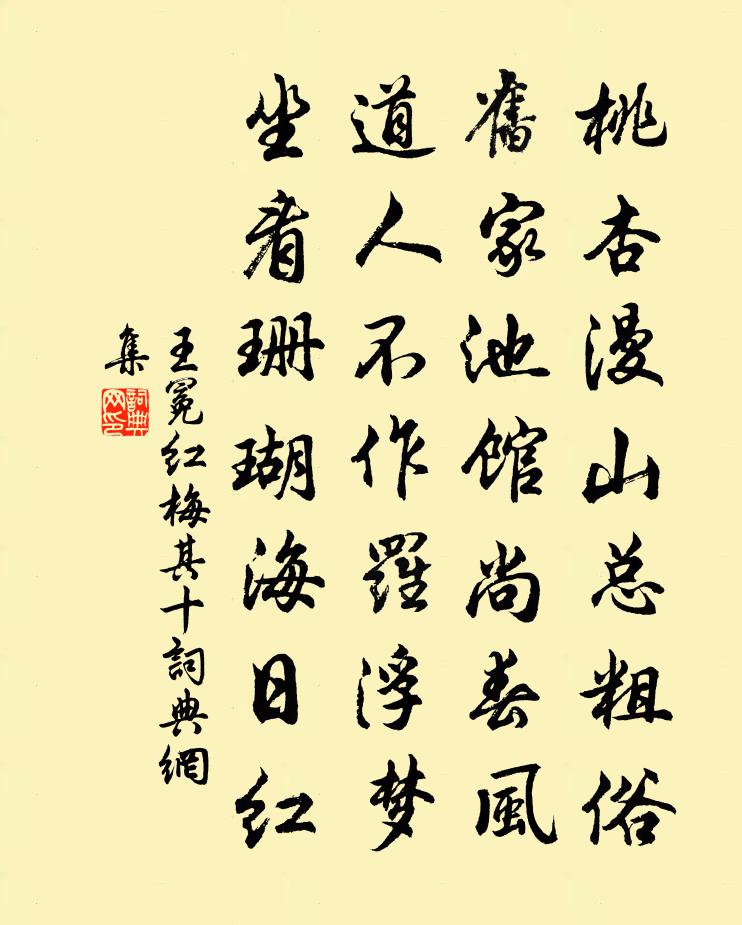 桃杏漫山总粗俗
舊家池馆尚春風
道人不作羅浮梦
坐看珊瑚海日红
王冕红梅其十詞典網
集
詞典
网印